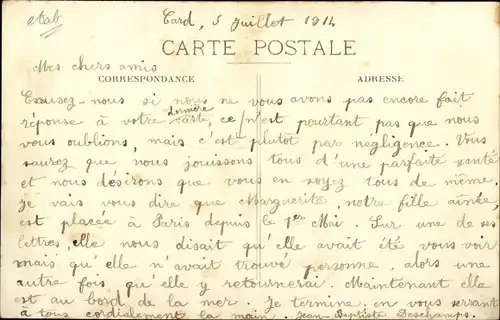 Card, 5 Juillet 1914
CARTE POSTALE
Mes chers amis
CORRESPONDANCE
ADRESSE
Excusez-nous si nous ne vous avons pas encore fait
dernière
réponse à votre carte, ce n'est pourtant pas que nous
vous oublions, mais c'est plutot par negligence. Vous
saurez que nous jouissons tous d'une parfaite santé
et nous désirons que vous en soyez tous de même.
Je vais vous dire que Marguerite, notre fille aînée,
est placée à Paris depuis le 1er Mai. Sur une de ses
lettres, elle nous disait qu'elle avait été vous voir
mais qu'elle n'avait trouvé personne, alors une
autre fois qu'elle y retournerai. Maintenant elle
est au bord de la mer. Je termine en vous serrant
à tous cordialement la main. Jean Baptiste Deschamps.